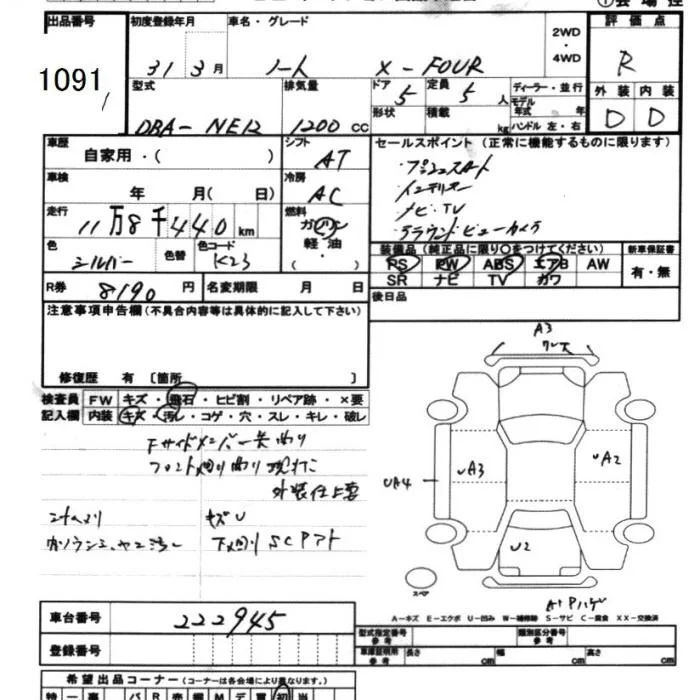 出品番号 初度登録年月 車名・グレード 会場控 評価点
1091 31 3月 ノート X-FOUR 2WD・4WD R
型式 排気量 ドア 5 定員 5人 ディーラー・並行 外装 内装
DBA-NE12 1200cc 形状 積載 kg モデル年式 年 ハンドル 左・右 D D
車歴 自家用・( ) シフト AT セールスポイント(正常に機能するものに限ります)
・プッシュスタート
車検 年 月( 日) 冷房 AC
・インテリキー
・ナビ・TV
走行 11万8千440km 燃料 ガソリン 軽油 ・( )
・アラウンドビューカメラ
色 シルバー 色替 色コード K23
装備品(純正品に限り○をつけてください) 新車保証書
PS PW ABS エアB AW 有・無
SR ナビ TV ガワ
R券 8190円 名変期限 月 日 後日品
注意事項申告欄(不具合内容等は具体的に記入して下さい)
修復歴 有 〔箇所 〕
検査員記入欄 FW キズ・飛石・ヒビ割・リペア跡・×要
内装 キズ・汚レ・コゲ・穴・スレ・キレ・破レ
Fサイドメンバー先曲り
外装仕上要
キズU
下廻りSCPアト
A3
UA4
UA3
UA2
U2
スペア
A1 Pハゲ
A-キズ E-エクボ U-凹み W-補修跡 S-サビ C-腐食 XX-交換済
車台番号 222945
登録番号
型式指定番号 参考 類別区分番号 参考
車庫証明用 参考 長さ cm 幅 cm 高さ cm
希望出品コーナー(コーナーは各会場により異なります。)